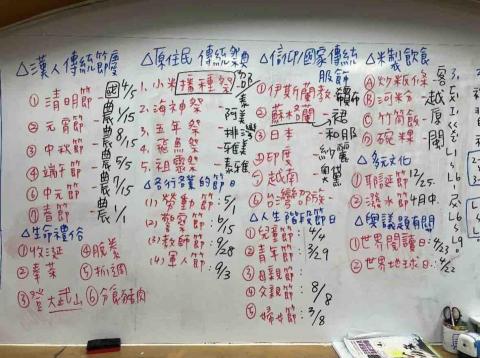 △漢人傳統節慶
①清明節 - 國4/5
②元宵節 - 農1/15
③中秋節 - 農8/15
④端午節 - 農5/5
⑤中元節 - 農7/15
⑥春節 - 農1/1
△生命禮俗
①收涎 ④服喪
②奉茶 ⑤抓週
③登大武山 ⑥分食豬肉
△原住民傳統祭典
1.小米播種祭
2.海神祭 - 阿美
3.五年祭 - 排灣
4.飛魚祭 - 雅美
5.祖靈祭 - 泰雅
△各行各業的節日
(1)勞動節:5/1
(2)警察節:6/15
(3)教師節:9/28
(4)軍人節:9/3
△信仰/國家傳統服飾
①伊斯蘭教 - 頭巾
②蘇格蘭 - 裙
③日本 - 和服
④印度 - 紗麗
⑤越南 - 奧黛
⑥台灣
△人生階段節日
①兒童節:4/4
②青年節:3/29
③母親節:
④父親節:8/8
⑤婦女節:3/8
△米製飲食
Ⓐ炒粄條 - 客
Ⓑ河粉 - 越
Ⓒ竹筒飯 - 原
Ⓓ碗粿 - 閩
△多元文化
①耶誕節 12/25
②潑水節 4月中
△與議題有關
①世界閱讀日:4/23
②世界地球日:4/22